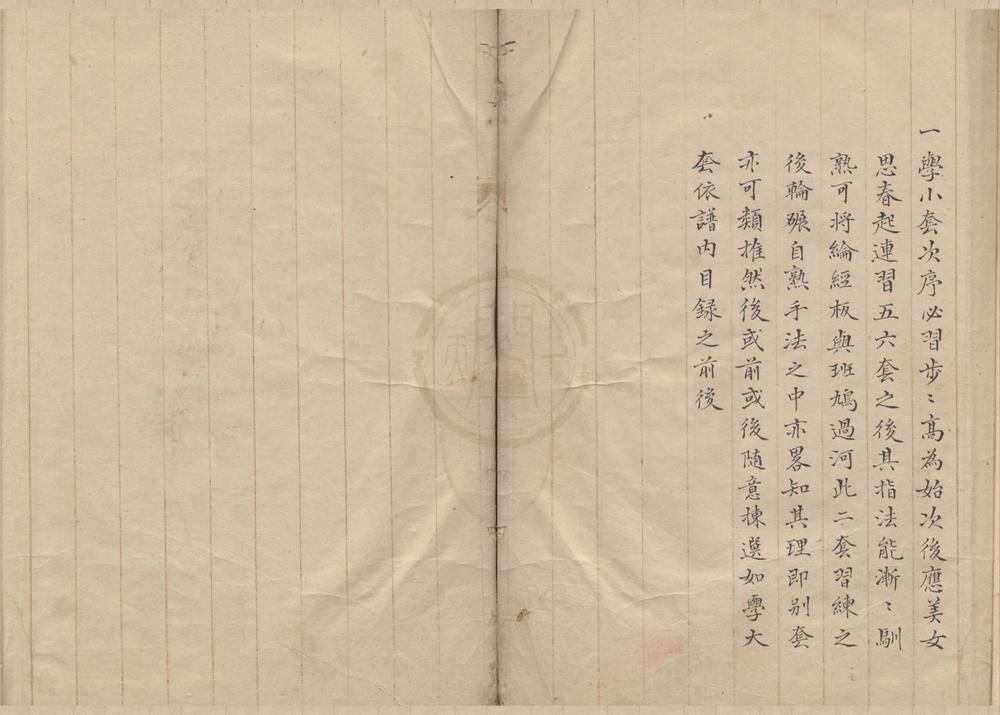 一學小套次序必習步〻高為始次後應美女
思春起連習五六套之後其指法能漸〻馴
熟可將綸經板與班鳩過河此二套習練之
後輪碾自熟手法之中亦畧知其理即別套
亦可類推然後或前或後随意揀選如學大
套依譜内目録之前後